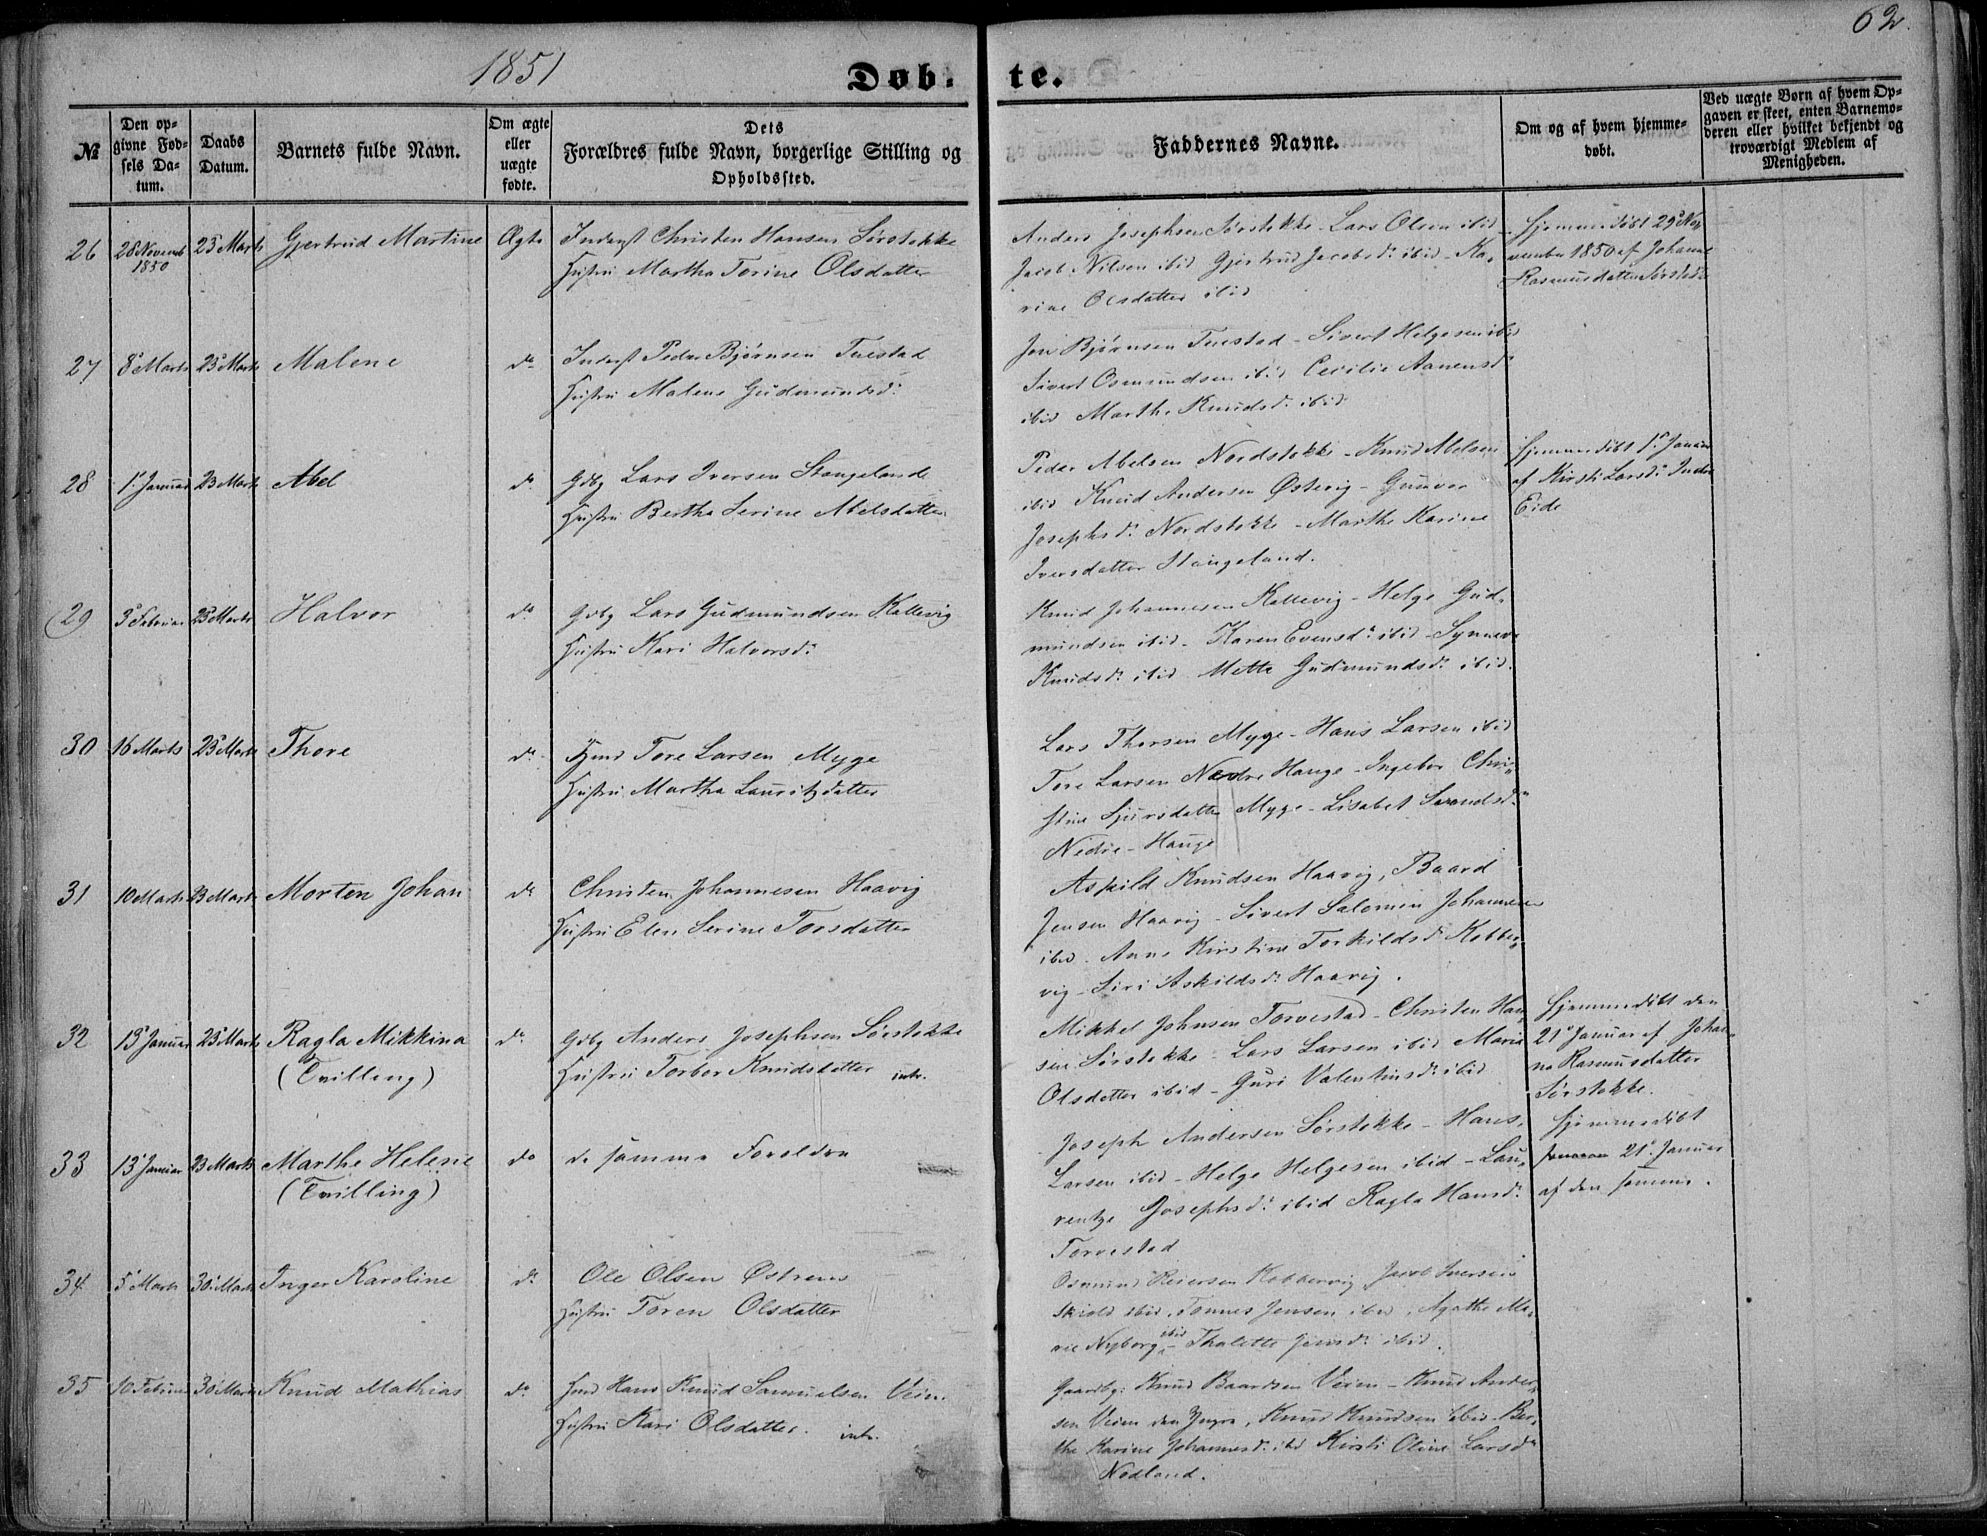 1851
Døb-
te.
62.
№
Den op-
givne Fød-
sels Da-
tum.
Daabs
Datum.
Barnets fulde Navn.
Om ægte
eller
uægte
fødte.
Dets
Forældres fulde Navn, borgerlige Stilling og
Opholdssted.
Faddernes Navne.
Om og af hvem hjemme-
døbt.
Ved uægte Børn af hvem Op-
gaven er skeet, enten Barnemo-
deren eller hvilket bekjendt og
troværdigt Medlem af
Menigheden.
26 28 Novemb 23 Marts Gjertrud Martine Ægte Inderst Christen Hansen Sørstokke
1850
Hustru Martha Torine Olsdatter
Anders Josephsen Sørstokke - Lars Olsen ibid
Jacob Nilsen ibid Gjertrud Jacobsd. ibid - Ka-
rine Olsdatter ibid
Hjemmedøbt 29 No-
vember 1850 af Johanne
Rasmusdatter Sørstokke
27 8 Marts 23 Marts Malene do Inderst Peder Bjørnsen Tuestad
Hustru Malene Gudmundsd.
Jon Bjørnsen Tuestad - Sivert Helgesen ibid
Sivert Osmundsen ibid Cecilie Aanensd
ibid Marthe Knudsd. ibid
28 1 Januar 23 Marts Abel do Gdbg Lars Iversen Stangeland
Hustru Bertha Serine Abelsdatter
Peder Abelsen Nordstokke - Knud Abelsen
ibid Knud Andersen Østevig - Gunvor
Josephsd. Nordstokke - Marthe Karine
Iversdatter Stangeland.
Hjemmedøbt 1 Januar
af Kirsti Larsd. Indre
Eide
29 3 Februar 23 Marts Halvor do Gdbg Lars Gudmundsen Kallevig
Hustru Kari Halvorsd.
Knud Johannesen Kallevig - Helge Gud-
mundsen ibid - Karen Evensd. ibid - Synneve
Knudsd. ibid Mette Gudmundsd. ibid.
30 16 Marts 23 Marts Thore do Hmd Tore Larsen Myge
Hustru Martha Lauritzdatter
Lars Thorsen Myge - Hans Larsen ibid
Tore Larsen Nedre Hauge - Ingebor Chri-
stine Sjursdatter Myge - Lisabet Svendsd.
Nedre-Hauge
31 10 Marts 23 Marts Morten Johan do Christen Johannesen Haavig
Hustru Elen Serine Torsdatter
Askild Knudsen Haavig, Baard
Jensen Haavig - Sivert Salomin Johannesen
ibid. Anne Kirstine Torkildsd. Kobber-
vig - Siri Askildsd. Haavig.
32 13 Januar 23 Marts Ragla Mikkina do Gdbg Anders Josephsen Sørstokke
(Tvilling) Hustru Torbor Knudsdatter intr.
Mikkel Johnsen Torvestad - Christen Han-
sen Sørstokke - Lars Larsen ibid Marie
Olsdatter ibid - Guri Valentinsd. ibid
Hjemmedøbt den
21 Januar af Johan-
na Rasmusdatter
Sørstokke.
33 13 Januar 23 Marts Marthe Helene do de samme Foreldre
(Tvilling)
Joseph Andersen Sørstokke - Hans
Larsen ibid - Helge Helgesen ibid - Lau-
rentze Josephsd. ibid Ragla Hansd.
Torvestad
Hjemmedøbt
21 Januar
af den samme.
34 5 Marts 30 Marts Inger Karoline do Ole Olsen Østrem
Hustru Toren Olsdatter
Osmund Reiersen Kobbervig Jacob Iversen
Skiold ibid. Tønnes Jensen ibid. Agathe Ma-
rie Nyborg ibid - Thalette Jensd. ibid.
35 10 Februar 30 Marts Knud Mathias do Hmd Hans Knud Samuelsen Veien.
Hustru Kari Olsdatter. intr.
Gaardbg. Knud Baardsen Veien - Knud Ander-
sen Veien den Yngre, Knud Knudsen ibid - Ber-
the Karine Johannesd. ibid Kirsti Oline Larsd.
Nodland.